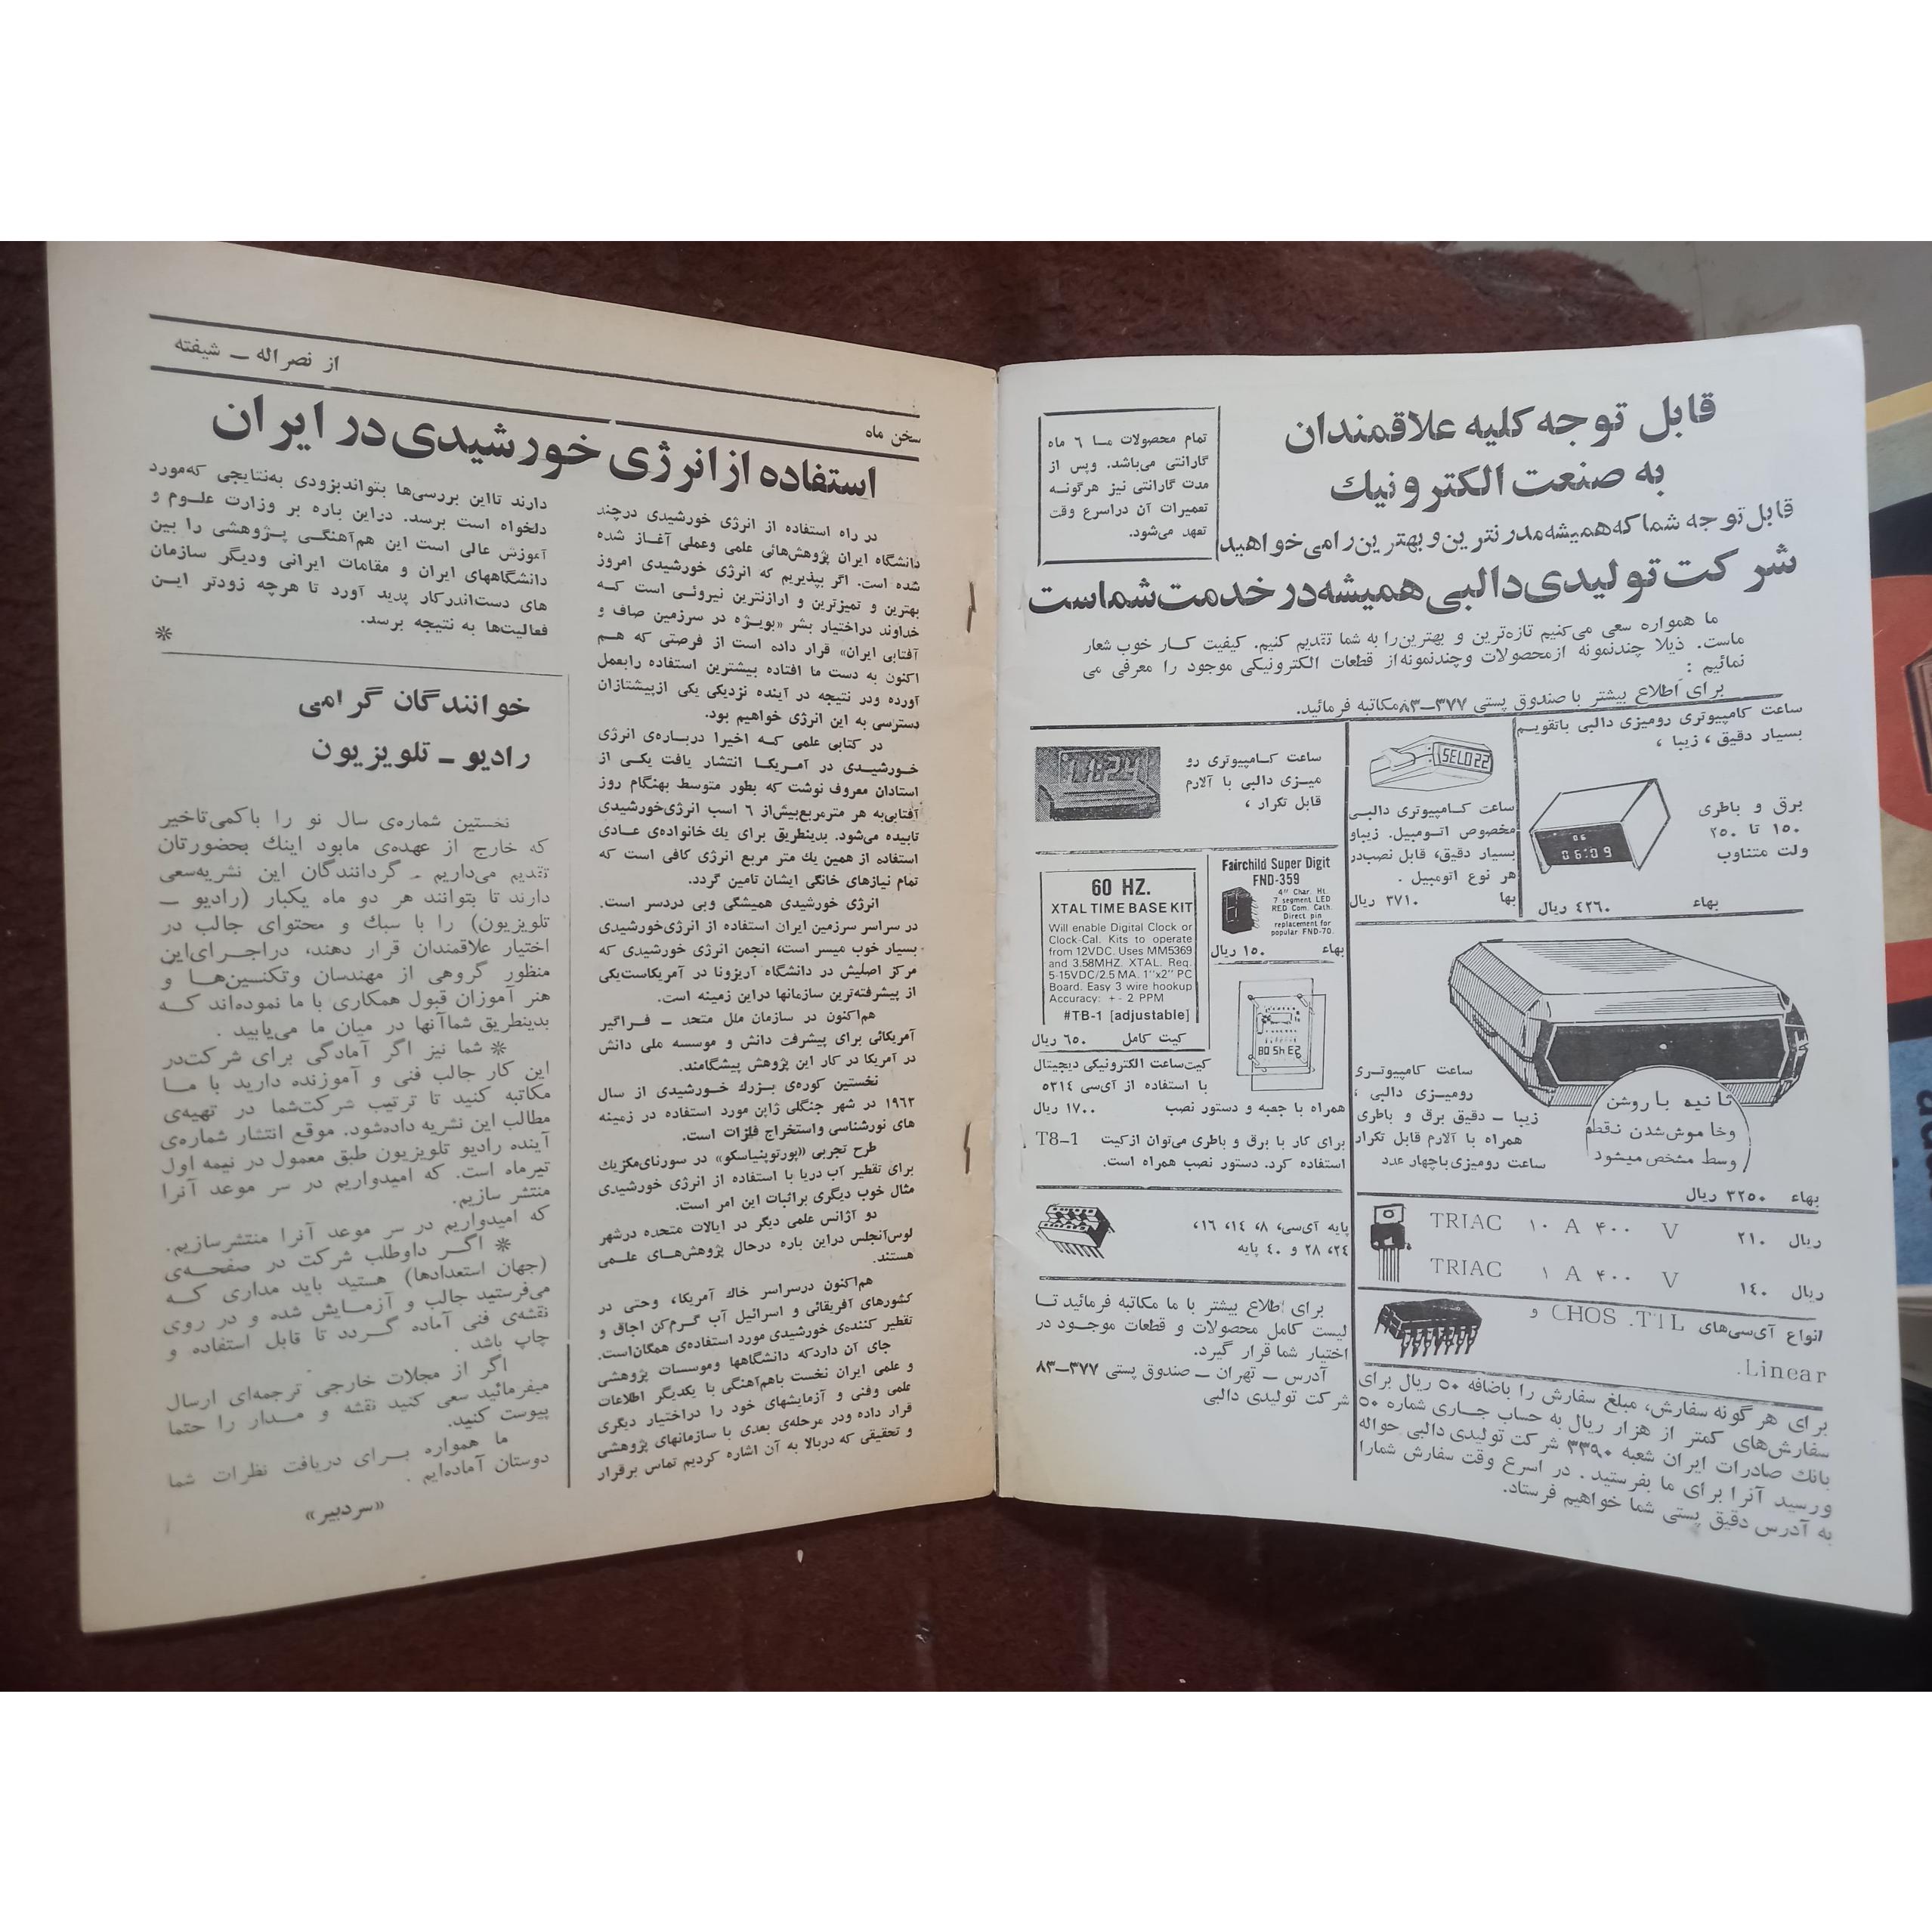 قابل توجه کلیه علاقمندان
به صنعت الکترونیک
قابل توجه شما که همیشه مدرنترین و بهترین را می‌خواهید
شرکت تولیدی دالبی همیشه در خدمت شماست
تمام محصولات مــا ۶ ماه
گارانتی می‌باشد. وپس از
مدت گارانتی نیز هرگونــه
تعمیرات آن دراسرع وقت
تعهد می‌شود.
ما همواره سعی می‌کنیم تازه‌ترین و بهترین‌را به شما تقدیم کنیم. کیفیت کــار خوب شعار
ماست. ذیلا چندنمونه ازمحصولات و چندنمونه‌از قطعات الکترونیکی موجود را معرفی می
نمائیم :
برای اطلاع بیشتر با صندوق پستی ۳۷۷–۸۳مکاتبه فرمائید.
ساعت کامپیوتری رومیزی دالبی باتقویــم
بسیار دقیق ، زیبا ،
برق و باطری
۱۵۰ تا ۲۵۰
ولت متناوب
06:09
بهاء ۴۲۶۰ ریال
ساعت کــامپیوتری دالبــی
مخصوص اتــومبیل. زیباو
بسیار دقیق، قابل نصب‌در
هر نوع اتومبیل .
بها ۳۷۱۰ ریال
ساعت کــامپیوتری رو
میــزی دالبی با آلارم
قابل تکرار ،
Fairchild Super Digit
FND-359
4" Char. Ht.
7 segment LED
RED Com. Cath.
Direct pin
replacement for
popular FND-70.
بهاء ۱۵۰ ریال
60 HZ.
XTAL TIME BASE KIT
Will enable Digital Clock or
Clock-Cal. Kits to operate
from 12VDC. Uses MM5369
and 3.58MHZ. XTAL. Req.
5-15VDC/2.5 MA. 1"x2" PC
Board. Easy 3 wire hookup
Accuracy: +- 2 PPM
#TB-1 [adjustable]
کیت کامل ۶۵۰ ریال
کیت‌ساعت الکترونیکی دیجیتال
با استفاده از آی‌سی ۵۳۱۴
همراه با جعبه و دستور نصب ۱۷۰۰ ریال
برای کار با برق و باطری می‌توان ازکیت T8–1
استفاده کرد. دستور نصب همراه است.
ساعت کامپیوتــری
رومیــزی دالبی ،
زیبا – دقیق برق و باطری
همراه با آلارم قابل تکرار
ساعت رومیزی‌باچهار عدد
ثانیه با روشن
وخاموش‌شدن نـقطه
وسط مشخص میشود
بهاء ۳۲۵۰ ریال
TRIAC ۱۰ A ۴۰۰ V ۲۱۰ ریال
TRIAC ۱ A ۴۰۰ V ۱۴۰ ریال
انواع آی‌سی‌های CHOS .TTL و
Linear.
پایه آی‌سی، ۸، ۱۴، ۱۶،
۲۴، ۲۸ و ۴۰ پایه
برای اطلاع بیشتر با ما مکاتبه فرمائید تــا
لیست کامل محصولات و قطعات موجــود در
اختیار شما قرار گیرد.
آدرس – تهران – صندوق پستی ۳۷۷–۸۳
شرکت تولیدی دالبی
برای هر گونه سفارش، مبلغ سفارش را باضافه ۵۰ ریال برای
سفارش‌های کمتر از هزار ریال به حساب جــاری شماره ۵۰
بانك صادرات ایران شعبه ۳۳۹۰ شرکت تولیدی دالبی حواله
و رسید آنرا برای ما بفرستید . در اسرع وقت سفارش شمارا
به آدرس دقیق پستی شما خواهیم فرستاد.
از نصراله – شیفته
سخن ماه
استفاده از انرژی خورشیدی در ایران
در راه استفاده از انرژی خورشیدی درچند
دانشگاه ایران پژوهش‌هائی علمی وعملی آغــاز شده
شده است. اگر بپذیریم که انرژی خورشیدی امروز
بهترین و تمیزترین و ارازنترین نیروئــی است کــه
خداوند دراختیار بشر «بویــژه در سرزمین صاف و
آفتابی ایران» قرار داده است از فرصتی که هــم
اکنون به دست ما افتاده بیشترین استفاده رابعمل
آورده ودر نتیجه در آینده نزدیکی یکی ازپیشتازان
دسترسی به این انرژی خواهیم بود.
در کتابی علمی کــه اخیرا دربــاره‌ی انرژی
خــورشیــدی در آمــریکــا انتشار یافت یکــی از
استادان معروف نوشت که بطور متوسط بهنگام روز
آفتابی‌به هر مترمربع‌بیش‌از ۶ اسب انرژی‌خورشیدی
تابیده می‌شود. بدینطریق برای یك خانواده‌ی عــادی
استفاده از همین یك متر مربع انرژی کافی است که
تمام نیازهای خانگی ایشان تامین گردد.
انرژی خورشیدی همیشگی وبی دردسر است.
در سراسر سرزمین ایران استفاده از انرژی‌خورشیدی
بسیار خوب میسر است، انجمن انرژی خورشیدی که
مرکز اصلیش در دانشگاه آریزونا در آمریکاست‌یکی
از پیشرفته‌ترین سازمانها دراین زمینه است.
هم‌اکنون در سازمان ملل متحد – فــراگیر
آمریکائی برای پیشرفت دانش و موسسه ملی دانش
در آمریکا در کار این پژوهش پیشگامند.
نخستین کوره‌ی بــزرك خــورشیدی از سال
۱۹۶۳ در شهر جنگلی ژاپن مورد استفاده در زمینه
های نورشناسی واستخراج فلزات است.
طرح تجربی «پورتوپنیاسکو» در سورنای‌مکزیك
برای تقطیر آب دریا با استفاده از انرژی خورشیدی
مثال خوب دیگری براثبات این امر است.
دو آژانس علمی دیگر در ایالات متحده درشهر
لوس‌آنجلس دراین باره درحال پژوهش‌هــای علــمی
هستند.
هم‌اکنون درسراسر خاك آمریکا، وحتی در
کشورهای آفریقائی و اسرائیل آب گــرم‌کن اجاق و
تقطیر کننده‌ی خورشیدی مورد استفاده‌ی همگان‌است.
جای آن داردکه دانشگاهها وموسسات پژوهشی
و علمی ایران نخست باهم‌آهنگی با یکدیگر اطلاعات
علمی وفنی و آزمایشهای خود را دراختیار دیگری
قرار داده ودر مرحله‌ی بعدی با سازمانهای پژوهشی
و تحقیقی که دربالا به آن اشاره کردیم تماس برقرار
دارند تااین بررسی‌ها بتواندبزودی به‌نتایجی که‌مورد
دلخواه است برسد. دراین باره بر وزارت علــوم و
آموزش عالی است این هم‌آهنگــی پــژوهشی را بین
دانشگاههای ایران و مقامات ایرانی ودیگر سازمان
های دست‌اندرکار پدید آورد تا هرچه زودتر ایــن
فعالیت‌ها به نتیجه برسد.
خوانندگان گرامی
رادیو – تلویزیون
نخستین شماره‌ی سال نو را باکمی‌تاخیر
که خارج از عهده‌ی مابود اینك بحضورتان
تقدیم می‌داریم . گردانندگان این نشریه‌سعی
دارند تا بتوانند هر دو ماه یکبار (رادیو –
تلویزیون) را با سبك و محتوای جالب در
اختیار علاقمندان قرار دهند، دراجــرای‌این
منظور گروهی از مهندسان وتکنسین‌هــا و
هنر آموزان قبول همکاری با ما نموده‌اند کــه
بدینطریق شماآنها در میان ما می‌یابید .
* شما نیز اگر آمادگی برای شرکت‌در
این کار جالب فنی و آموزنده دارید با مــا
مکاتبه کنید تا ترتیب شرکت‌شما در تهیه‌ی
مطالب این نشریه داده‌شود. موقع انتشار شماره‌ی
آینده رادیو تلویزیون طبق معمول در نیمه اول
تیرماه است. که امیدواریم در سر موعد آنرا
منتشر سازیم.
که امیدواریم در سر موعد آنرا منتشرسازیم.
* اگــر داوطلب شرکت در صفحــه‌ی
(جهان استعدادها) هستید باید مداری کــه
می‌فرستید جالب و آزمــایش شده و در روی
نقشه‌ی فنی آماده گــردد تا قابل استفاده و
چاپ باشد .
اگر از مجلات خارجی ترجمه‌ای ارسال
میفرمائید سعی کنید نقشه و مــدار را حتما
پیوست کنید.
ما همواره بــرای دریافت نظرات شما
دوستان آماده‌ایم .
«سردبیر»